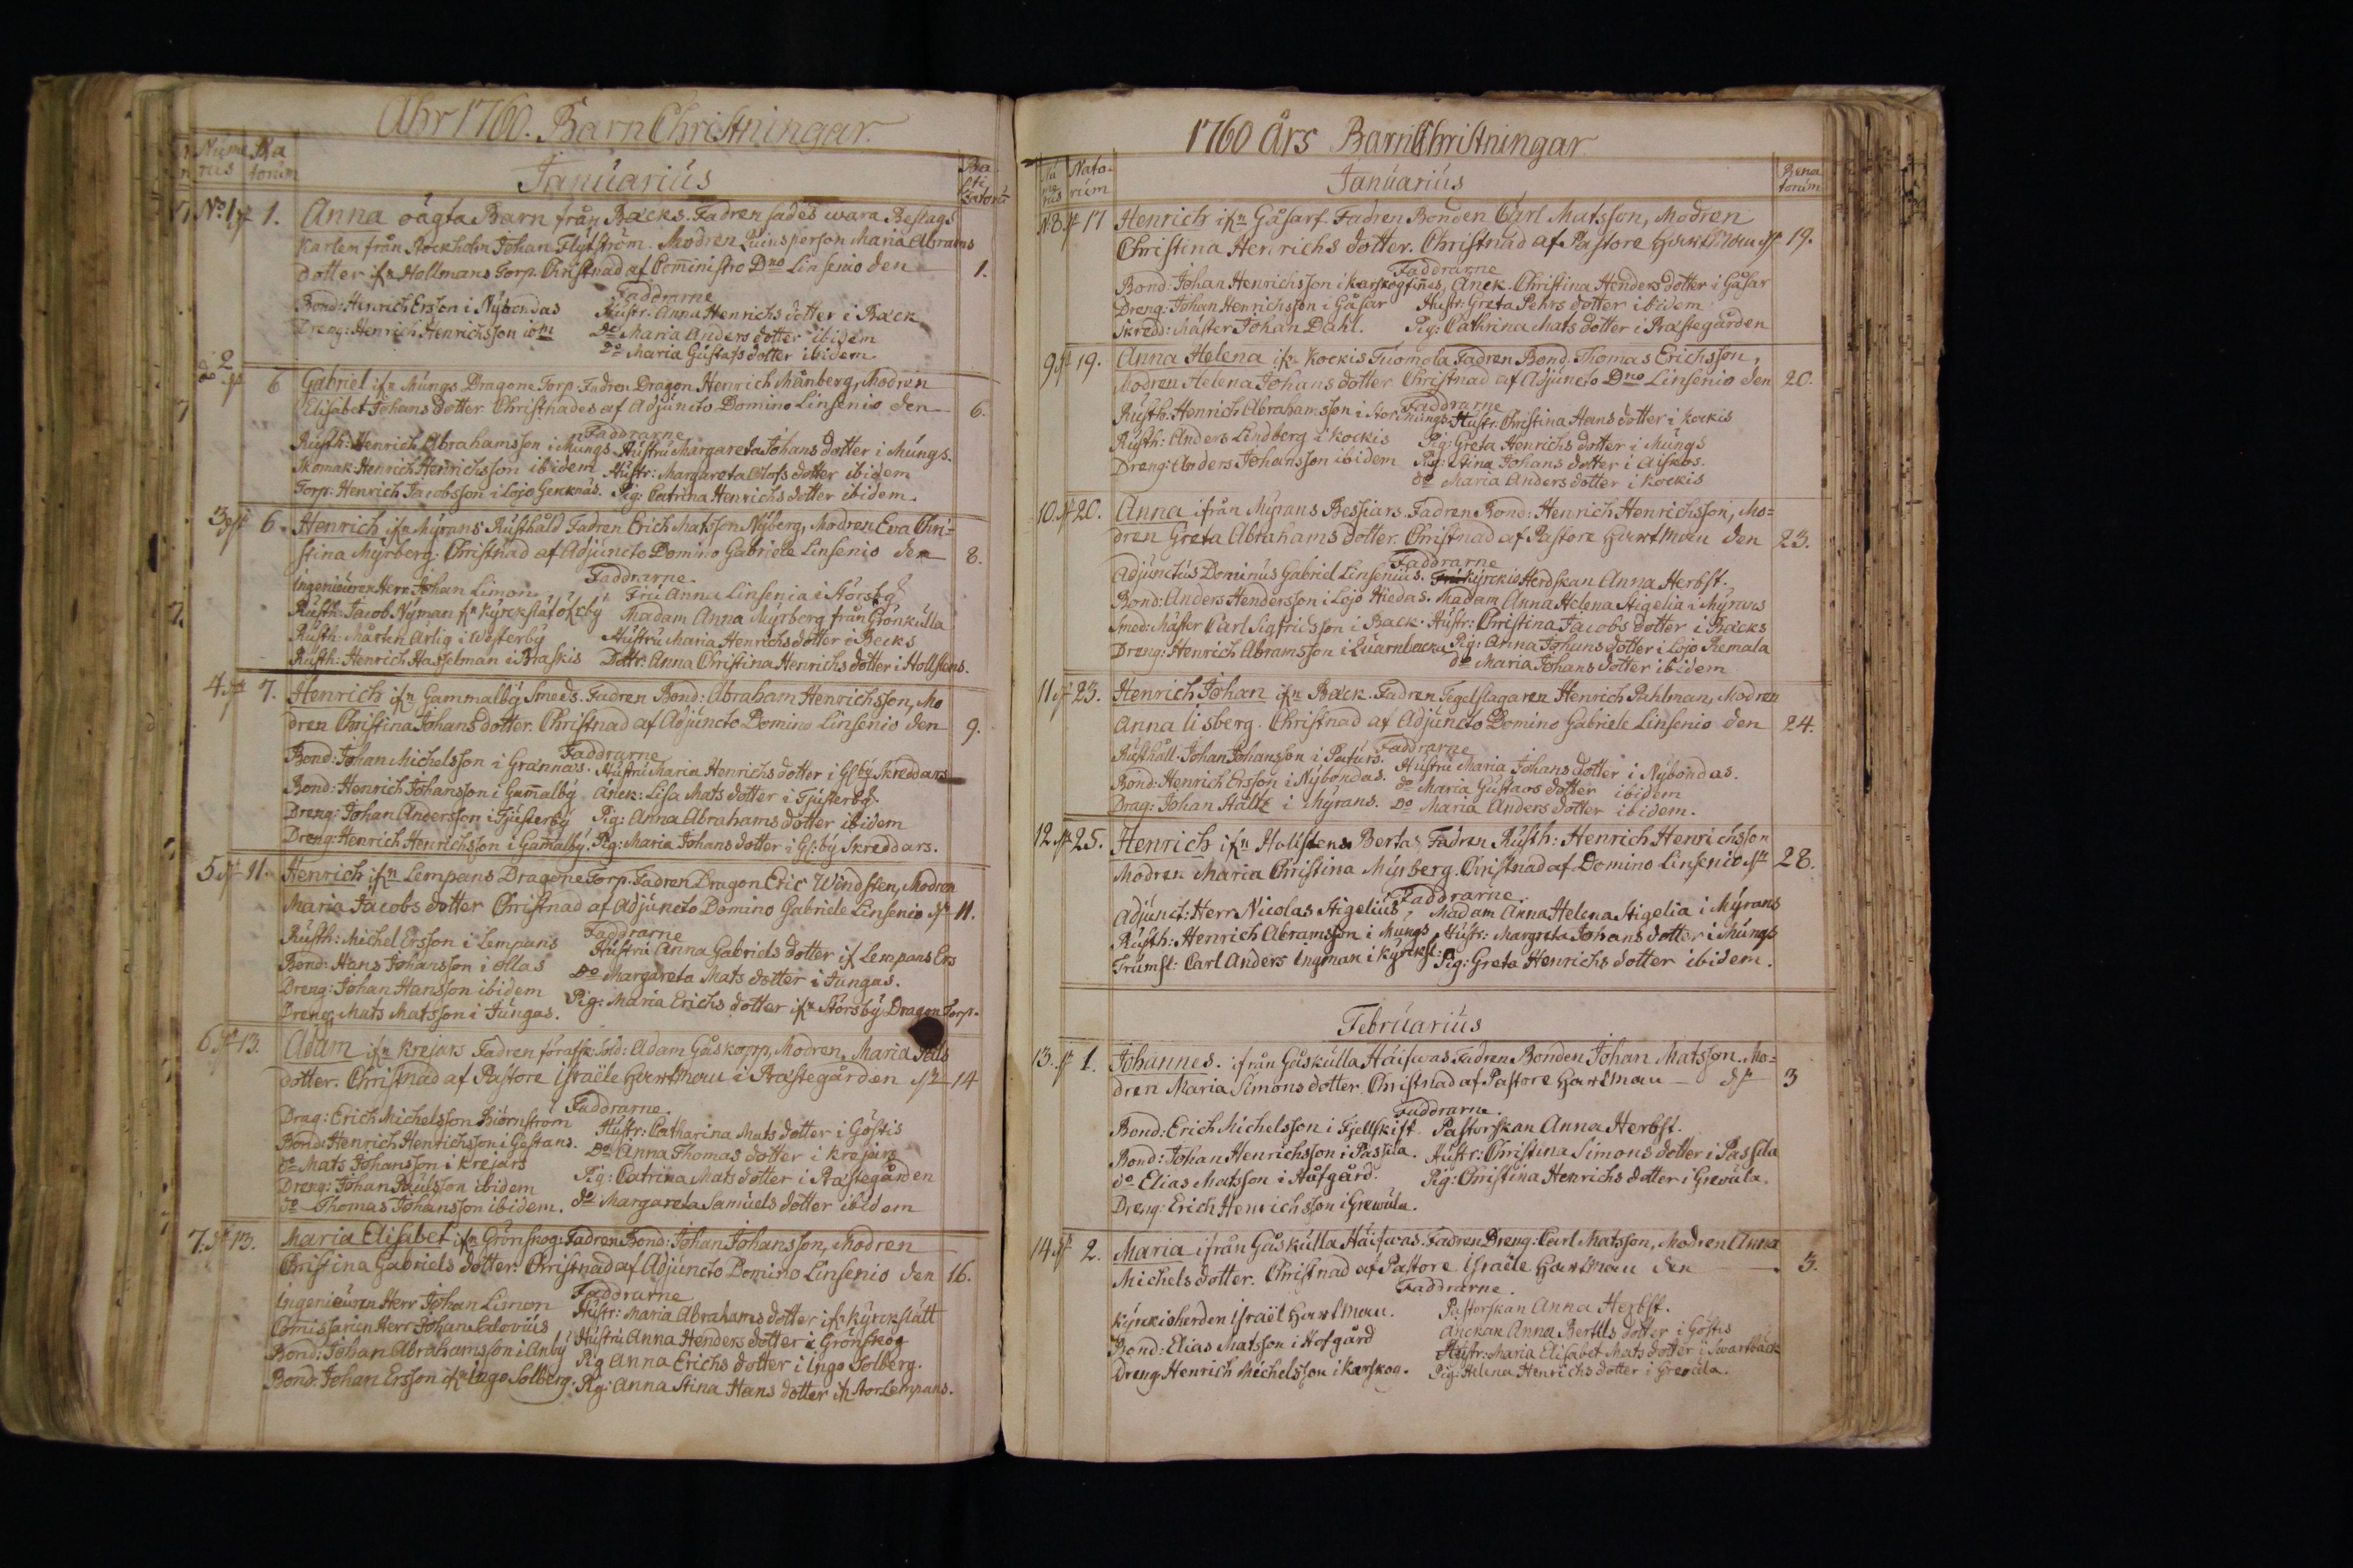 Åhr 1760. Barn Christningar.
Nume rus
Na torum
Januarius
Bap ti zatorum
No 1 d. 1. Anna oägta Barn från Backs. Fadren sades wara Beslags
Karlen från Stockholm Johan Flytström. Modren Quinsperson Maria Abrams
dotter ifn Hollmans Torp. Christnad af Comministro Dno Linsenio den 1.
Faddrarne
Bond: Henrich Ersson i Nybondas Hustr: Anna Henrichs dotter i Back
Dreng: Henrich Henrichsson ibm Do Maria Anders dotter ibidem
Do Maria Gustafs dotter ibidem
2 d. 6 Gabriel ifn Mungs Dragone Torp. Fadren Dragon Henrich Månberg, Modren
Elisabet Johans dotter. Christnades af Adjuncto Domino Linsenio den 6.
Faddrarne
Rusth: Henrich Abrahamsson i Mungs Hustru Margareta Johans dotter i Mungs.
Skomak: Henrich Henrichsson ibidem Hustr: Margareta Olofs dotter ibidem
Torp: Henrich Jacobsson i Lojo Gerknäs. Pig: Catrina Henrichs dotter ibidem.
3 d. 6. Henrich ifn Myrans Rusthåld Fadren Erich Matsson Nyberg, Modren Eva Chri-
stina Myrberg. Christnad af Adjuncto Domino Gabriele Linsenio den 8.
Faddrarne.
Ingenieuren Herr Johan Limon Fru Anna Linsenia i Storsby
Rusth: Jacob Nyman fn Kyrckstat Madam Anna Myrberg från Grönkulla
Rusth: Mårten Arlig i Westerby Hustru Maria Henrichs dotter i Becks
Rusth: Henrich Hasselman i Braskis Dottr: Anna Christina Henrichs dotter i Hollstens.
4. d. 7. Henrich ifn Gammalby Smeds. Fadren Bond: Abraham Henrichsson, Mo
dren Christina Johans dotter. Christnad af Adjuncto Domino Linsenio den 9.
Faddrarne
Bond: Johan Michelsson i Grännäs. Hustru Maria Henrichs dotter i Glby Skreddars
Bond: Henrich Johansson i Gammalby Anck: Lisa Mats dotter i Tjusterby
Dreng: Johan Andersson i Tjusterby Pig: Anna Abrahams dotter ibidem
Dreng: Henrich Henrichsson i Gamalby. Pig: Maria Johans dotter i Gl:by Skreddars.
5 d. 11. Henrich ifn Lempans Dragone Torp. Fadren Dragon Eric Windsten, Modren
Maria Jacobs dotter Christnad af Adjuncto Domino Gabriele Linsenio d. 11.
Faddrarne
Rusth: Michel Ersson i Lempans Hustru Anna Gabriels dotter if Lempans Ers
Bond: Hans Johansson i Ollas Do Margareta Mats dotter i Jungas.
Dreng: Johan Hansson ibidem Pig: Maria Erichs dotter ifn Storsby Dragon Torp.
Dreng Mats Matsson i Jungas.
6 d. 13. Adam ifn Krejars Fadren förafsk: Sold: Adam Gåskopp, Modren, Maria
dotter. Christnad af Pastore Israële Hartman i Prästegården d. 14
Faddrarne.
Drag: Erich Michelsson Biörnström Hustr: Catharina Mats dotter i Göstis
Bond: Henrich Henrichsson i Gestrans. Do Anna Thomas dotter i Krejars
do Mats Johansson i Krejars Pig: Catrina Mats dotter i Prästegården
Dreng: Johan Paulsson ibidem do Margareta Samuels dotter ibidem
do Thomas Johansson ibidem.
7. d. 13. Maria Elisabet ifn Grönskog: Fadren Bond: Johan Johansson, Modren
Christina Gabriels dotter. Christnad af Adjuncto Domino Linsenio den 16.
Faddrarne
Ingenieuren Herr Johan Limon Hustr: Maria Abrahams dotter ifn Kyrckslätt
Comissarien Herr Johan Calovius Hustru Anna Henders dotter i Grönskog
Bond: Johan Abrahamsson i Anby Pig Anna Erichs dotter i Ingo Solberg.
Bond: Johan Ersson ifn Ingo Solberg. Pig: Anna Stina Hans dotter if Stor Lempans.
1760 Års Barn Christningar
Nu me rus
Nato rum
Januarius
Rena torum
N8. d. 17 Henrich ifn Gåsarf. Fadren Bonden Carl Matsson, Modren
Christina Henrichs dotter. Christnad af Pastore Hartman d. 19.
Faddrarne
Bond: Johan Henrichsson i Karskogfinnes, Anck. Christina Henders dotter i Gåsar
Dreng: Johan Henrichsson i Gåsar Hustr: Greta Pehrs dotter ibidem
Skredd: Mäster Johan Dahl. Pig: Cathrina Mats dotter i Prästegården
9 d. 19. Anna Helena ifn Kockis Tuomola Fadren Bond. Thomas Erichsson,
Modren Helena Johans dotter Christnad af Adjuncto Dno Linsenio den 20.
Faddrarne
Rusth: Henrich Abrahamsson i Stor Mungs. Hustr: Christina Hans dotter i Kockis
Rusth: Anders Lindberg i Kockis Pig: Greta Henrichs dotter i Mungs
Dreng: Anders Johansson ibidem Pig: Stina Johans dotter i Aiskos.
do Maria Anders dotter i Kockis
10. d. 20. Anna ifrån Myrans Bessiars. Fadren Bond: Henrich Henrichsson, Mo=
dren Greta Abrahams dotter. Christnad af Pastore Hartman den 23.
Faddrarne
Adjunctus Dominus Gabriel Linsenius. Kyrckio Herdskan Anna Herbst.
Bond: Anders Hendersson i Lojo Hiedas. Madam Anna Helena Stigelia i Myrans
Smed: Mäster Carl Sigfridsson i Back. Hustr: Christina Jacobs dotter i Backs
Dreng: Henrich Abramsson i Quarnbacka Pig: Anna Johans dotter i Lojo Remala
do Maria Johans dotter ibidem
11 d. 23. Henrich Johan ifn Back. Fadren Tegelslagaren Henrich Pahlman, Modren
Anna Lisberg. Christnad af Adjuncto Domino Gabriele Linsenio den 24.
Faddrarne
Rusthåll: Johan Johansson i Paturs. Hustru Maria Johans dotter i Nybondas.
Bond: Henrich Ersson i Nybondas. do Maria Gustavs dotter ibidem
Drag: Johan Stältz i Myrans. Do Maria Anders dotter ibidem.
12. d. 25. Henrich ifn Hollstens Bertas Fadren Rusth: Henrich Henrichsson
Modren Maria Christina Myrberg. Christnad af Domino Linsenio d. 28.
Faddrarne.
Adjunct: Herr Nicolas Stigelius, Madam Anna Helena Stigelia i Myrans
Rusth: Henrich Abramsson i Mungs Hustr: Margreta Johans dotter i Mungs
Trumsl: Carl Anders Lngman i Kyrcksl: Pig: Greta Henrichs dotter ibidem.
Februarius
13. d. 1. Johannes. ifrån Gåskulla Häiswas Fadren Bonden Johan Matsson. Mo=
dren Maria Simons dotter. Christnad af Pastore Hartman d. 3
Faddrarne.
Bond: Erich Michelsson i Fjellskift. Pastorskan Anna Herbst.
Bond: Johan Henrichsson i Passila. Hustr: Christina Simons dotter i Passila
do Elias Matsson i Håfgård. Pig: Christina Henrichs dotter i Grewula.
Dreng: Erich Henrichsson i Grewula.
14 d. 2. Maria ifrån Gåskulla Häiswas. Fadren Dreng: Carl Matsson, Modren Anna
Michels dotter. Christnad af Pastore Israële Hartman den 3.
Faddrarne.
Kyrckioherden Israël Hartman. Pastorskan Anna Herbst.
Bond: Elias Matsson i Hofgård Anckan Anna Bertils dotter i Göstis
Dreng Henrich Michelsson i Karskog. Hustr: Maria Elisabet Mats dotter i Swartbäck
Pig: Helena Henrichs dotter i Grewula.